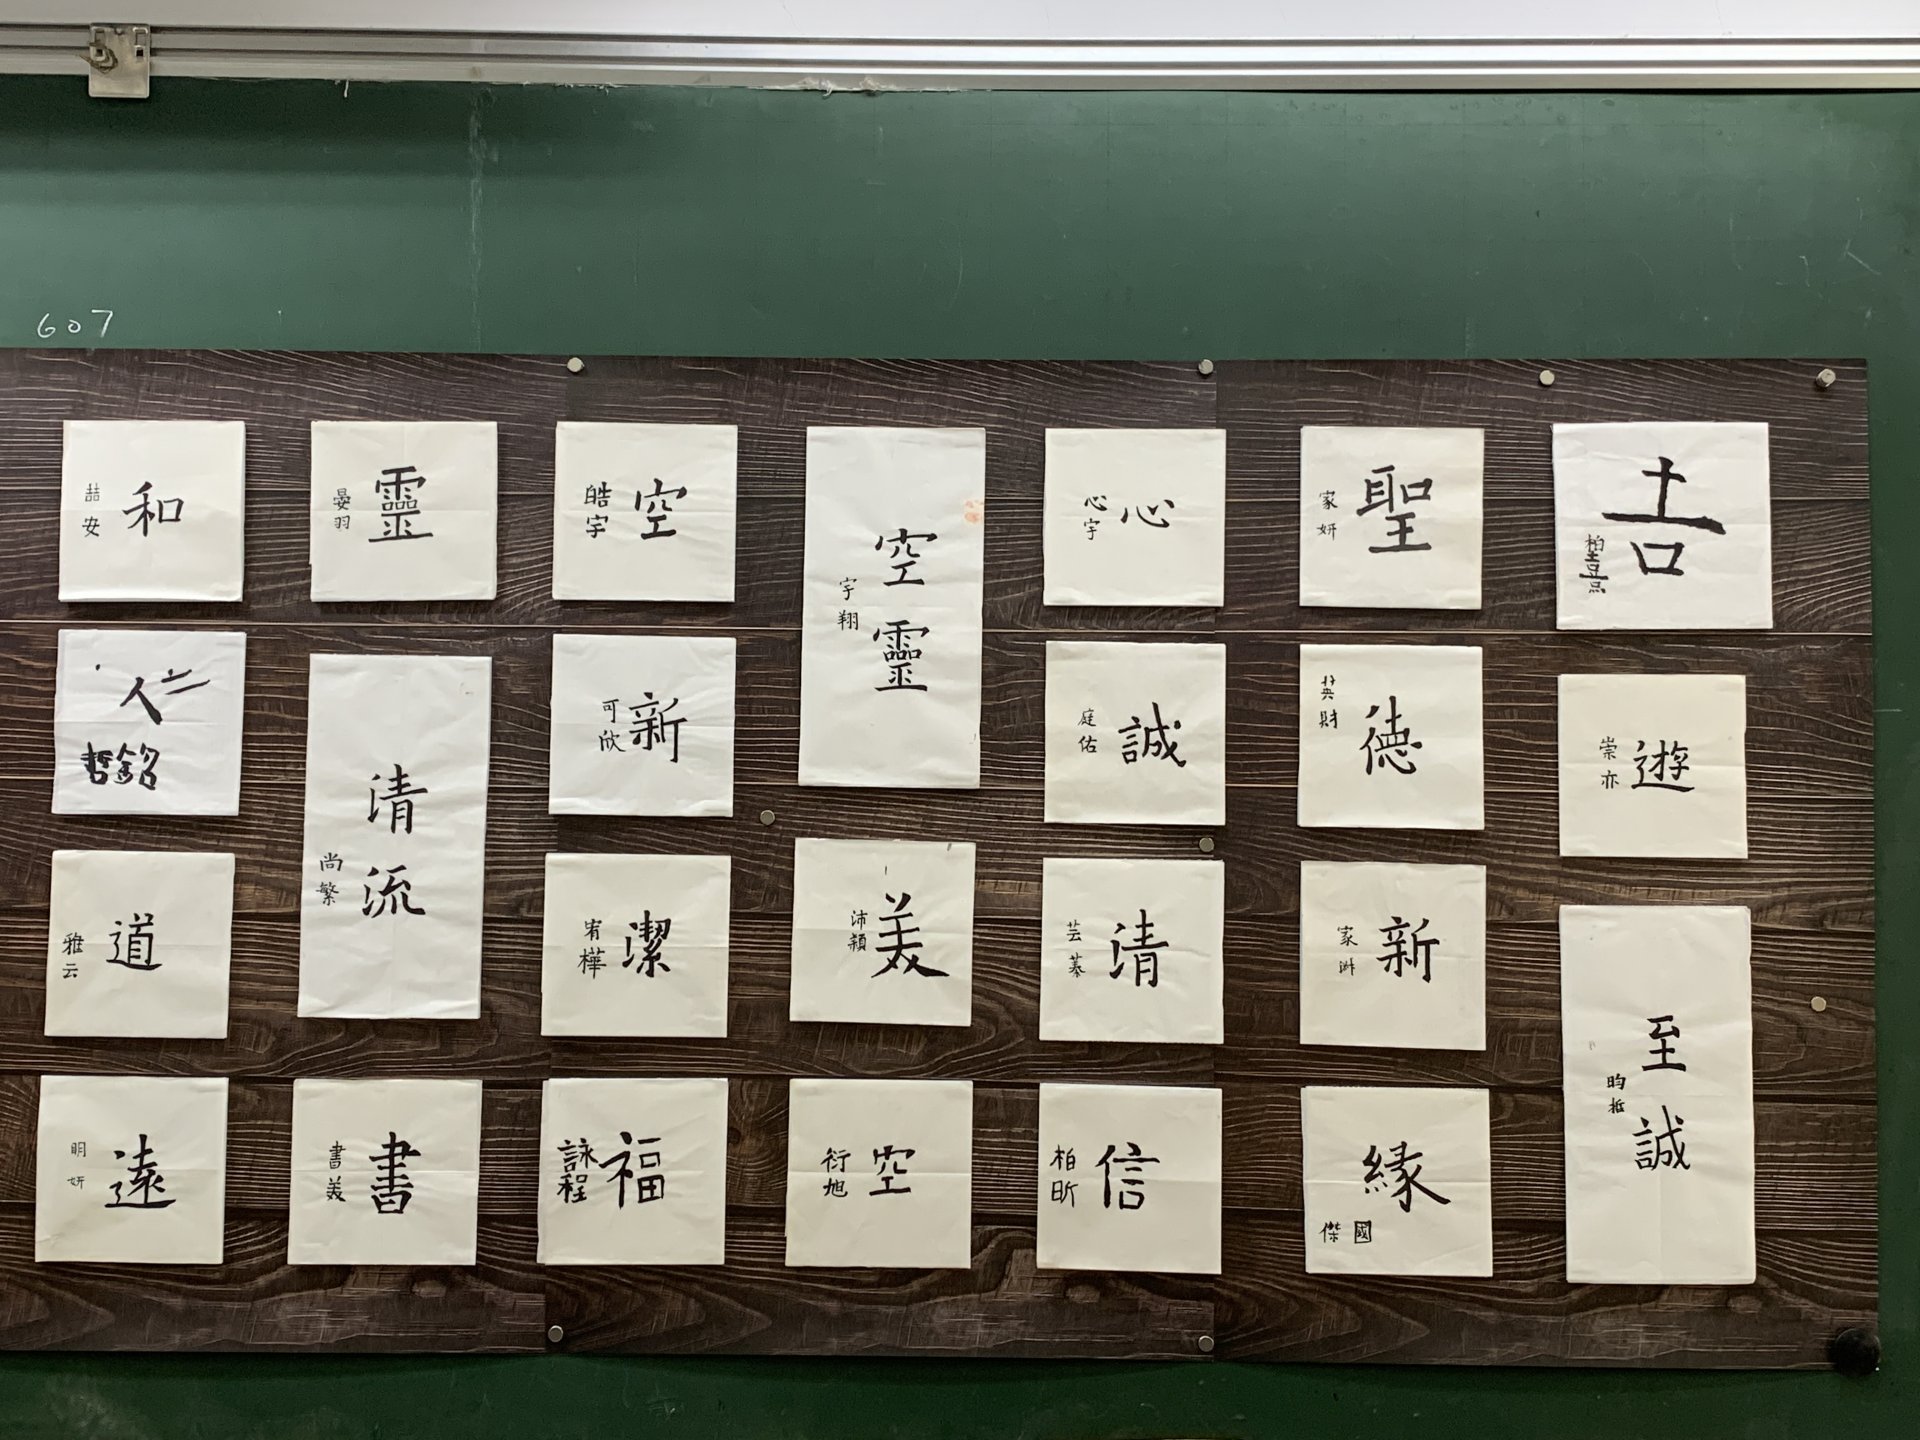 607
和
喆安
靈
晏羽
空
皓宇
空靈
宇翔
心
心宇
聖
家妍
吉
人二
哲銘
清流
尚繁
新
可欣
誠
庭佑
德
英財
遊
崇亦
道
雅云
潔
宥樺
美
沛穎
清
芸蓁
新
家洲
至誠
昀
遠
明妍
書
書美
福
詠程
空
衍旭
信
柏昕
緣
國傑